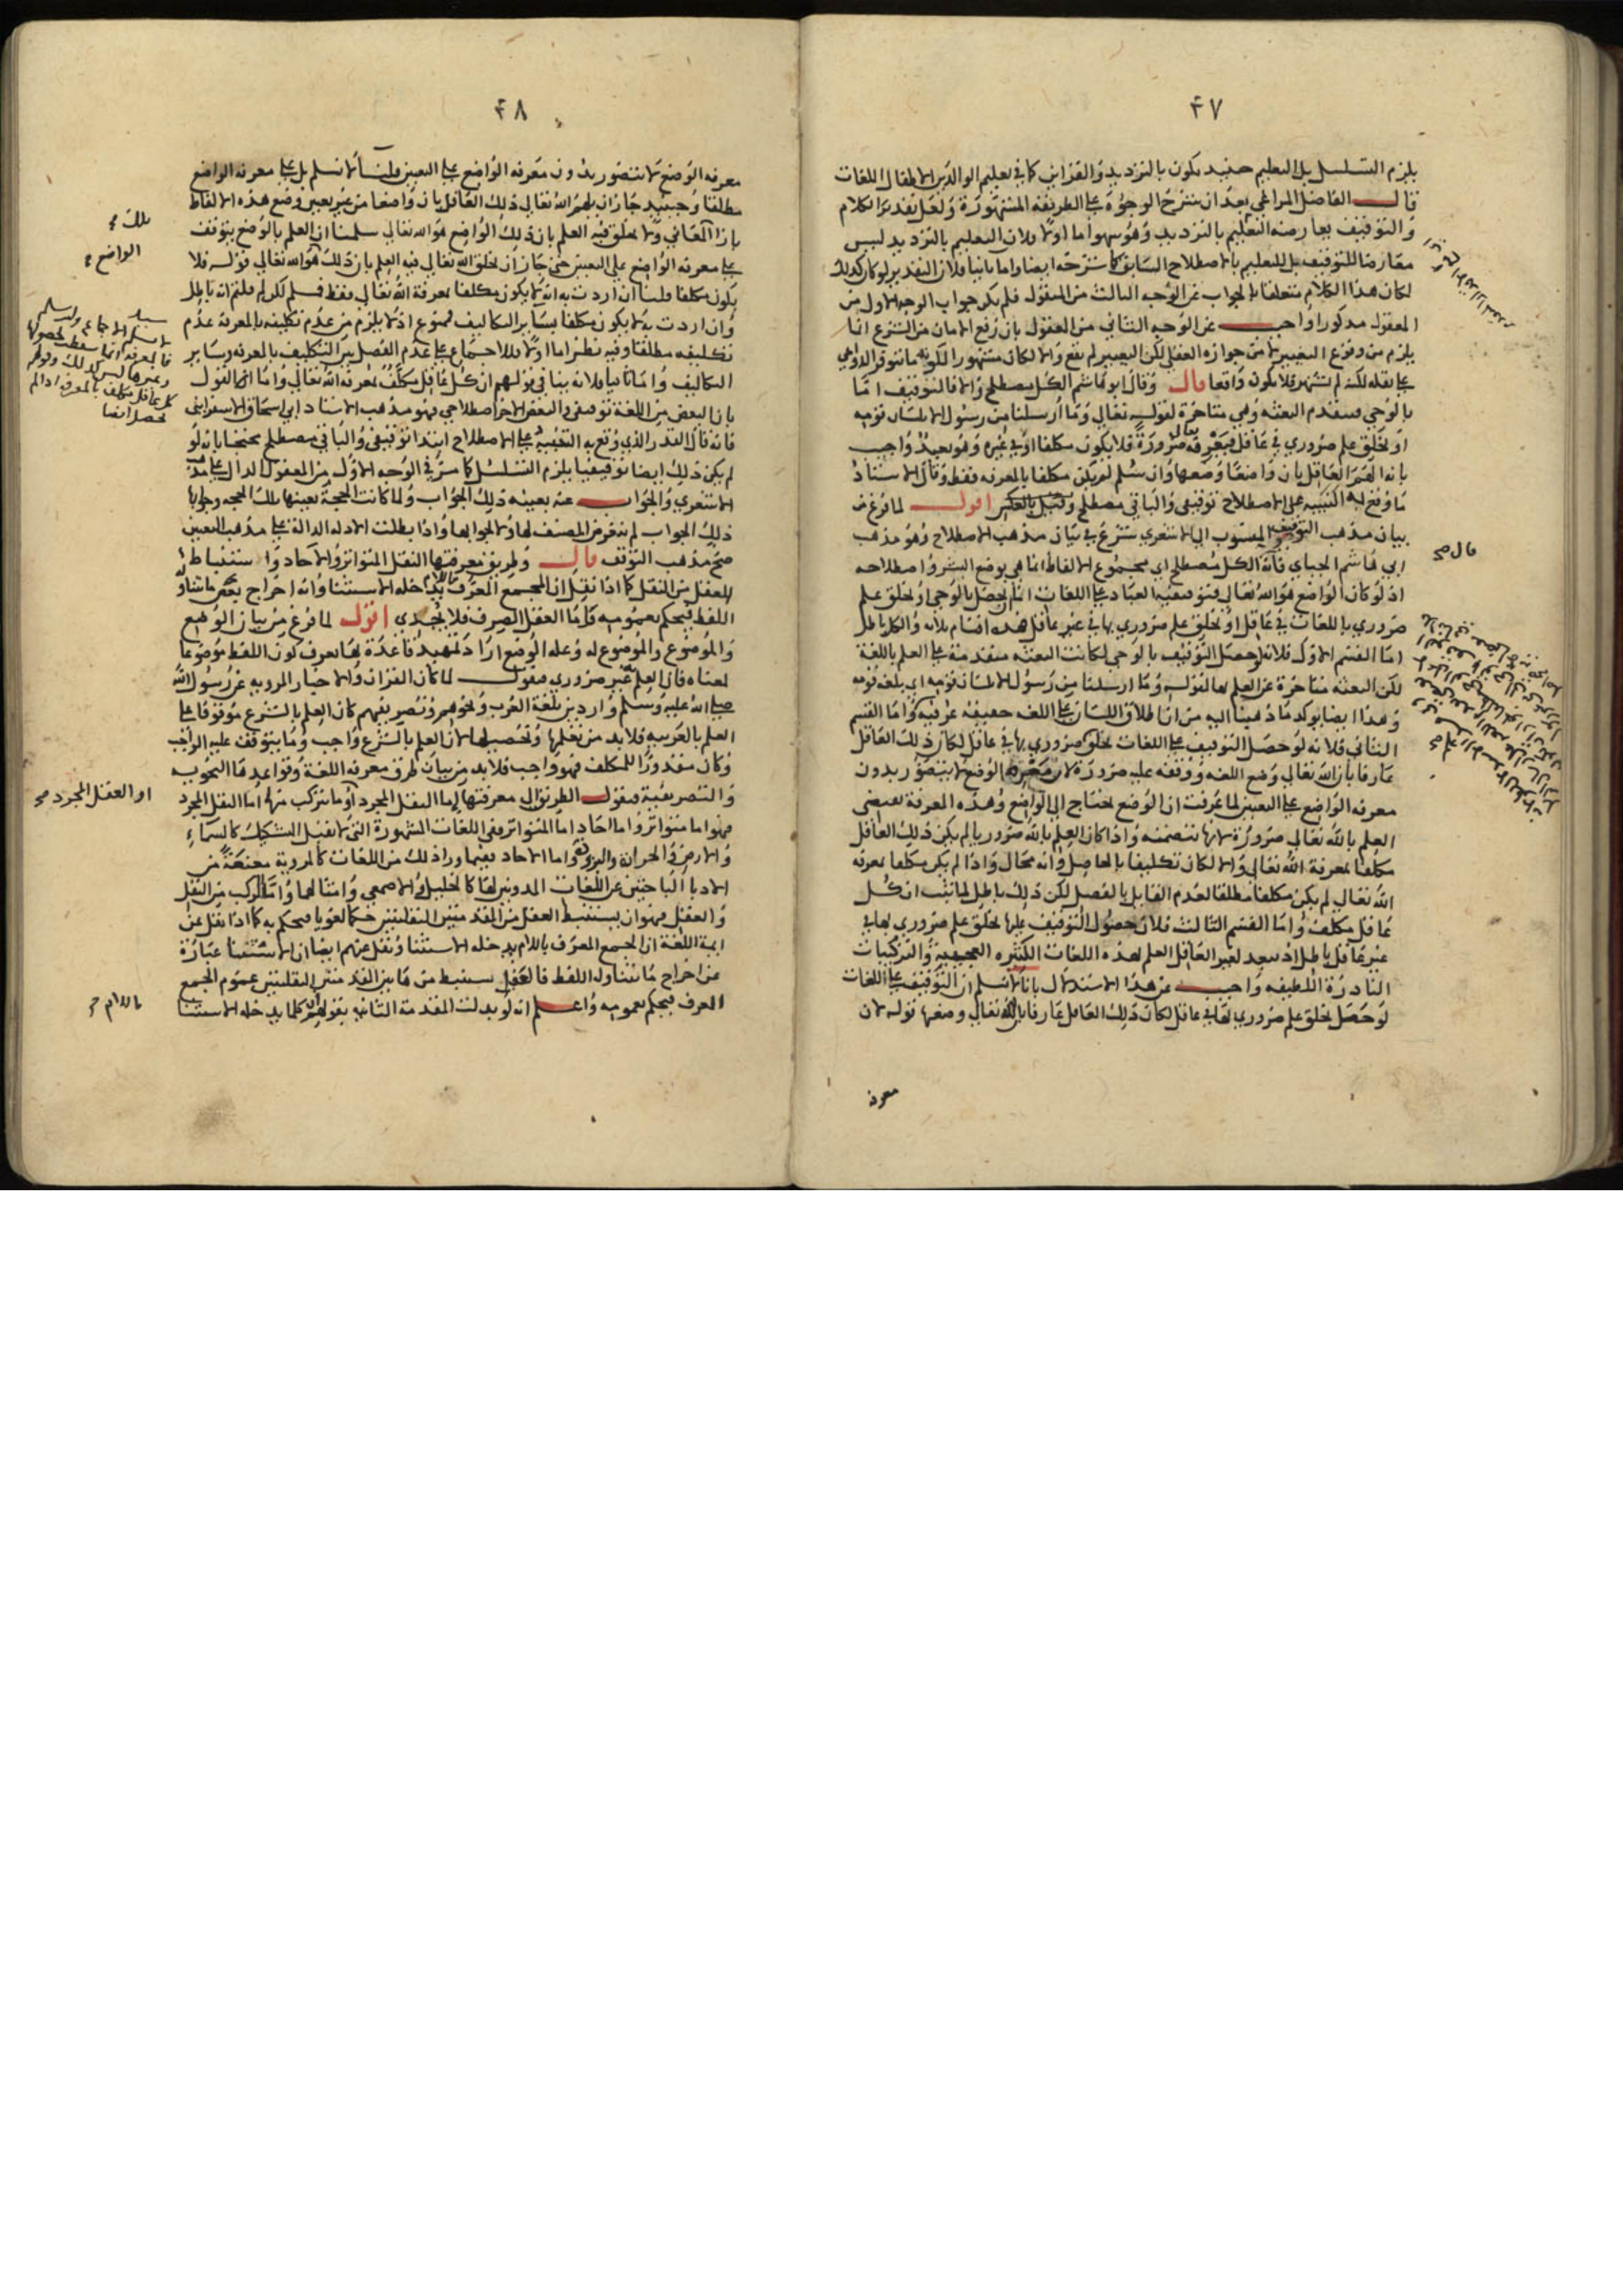 ٤٧
يلزم التسلسل بل التعليم حينئذ يكون بالترديد والقراين كما في تعليم الوالدين الاطفال اللغات
قال الفاضل المراغي بعد ان شرح الوجوه على الطريقة المشهورة ولعل تقدير الكلام
والتوقيف يعارضه التعليم بالترديد وهو سهو اما اولا فلان التعليم بالترديد ليس
معارضا للتوقيف بل للتعليم بالاصطلاح السابق كما شرحه ايضا واما ثانيا فلان التقدير لو كان كذلك
لكان هذا الكلام متعلقا بالجواب عن الوجه الثالث من المنقول فلم يكن جواب الوجه الاول من
المعقول مذكورا واجيب عن الوجه الثاني من المعقول بان رفع الامان عن الشرع انما
يلزم من وقوع التغيير لا من جوازه العقلي لكن التغيير لم يقع والا لكان مشهورا لكونه مما تتوفر الدواعي
على نقله لكنه لم يشتهر فلا يكون واقعا قال وقال ابو هاشم الكل مصطلح والا فالتوقيف اما
بالوحي فيتقدم البعثة وهي متاخرة لقوله تعالى وما ارسلنا من رسول الا بلسان قومه
او بخلق علم ضروري في عاقل فيعرفه تعالى ضرورة فلا يكون مكلفا او في غيره وهو بعيد واجيب
بانه الهم العاقل بان واضعا وضعها وان سلم لم يكن مكلفا بالمعرفة فقط وقال الاستاذ
ما وقع به التنبيه على الاصطلاح توقيفي والباقي مصطلح وقيل بالعكس اقول لما فرغ من
بيان مذهب التوقيف المنسوب الى الاشعري شرع في بيان مذهب الاصطلاح وهو مذهب
ابي هاشم الجباي فانه الكل مصطلح اي مجموع الالفاظ انما هي بوضع البشر واصطلاحه
اذ لو كان الواضع هو الله تعالى فتوقيفه العباد على اللغات انما يحصل بالوحي او بخلق علم
ضروري باللغات في عاقل او بخلق علم ضروري بها في غير عاقل هذه اقسام ثلاثة والكل باطل
اما القسم الاول فلانه لو حصل التوقيف بالوحي لكانت البعثة متقدمة على العلم باللغة
لكن البعثة متاخرة عن العلم بها لقوله وما ارسلنا من رسول الا بلسان قومه اي بلغة قومه
وهذا ايضا يوكد ما ذهبنا اليه من ان اطلاق اللسان على اللغة حقيقة عرفية واما القسم
الثاني فلانه لو حصل التوقيف على اللغات بخلق ضروري بها في عاقل لكان ذلك العاقل
عارفا بان الله تعالى وضع اللغة ووقفه عليه ضرورة لان معرفة الوضع لا يتصور بدون
معرفة الواضع على التعيين لما عرفت ان الوضع يحتاج الى الواضع وهذه المعرفة تقتضي
العلم بالله تعالى ضرورة لانها تتضمنه واذا كان العلم بالله ضروريا لم يكن ذلك العاقل
مكلفا بمعرفة الله تعالى والا لكان تكليفا بالحاصل وانه محال واذا لم يكن مكلفا بمعرفة
الله تعالى لم يكن مكلفا مطلقا لعدم القايل بالفصل لكن ذلك باطل لما ثبت ان كل
عاقل مكلف واما القسم الثالث فلان حصول التوقيف عليها بخلق علم ضروري بها في
غير عاقل باطل اذ يبعد لغير العاقل العلم بهذه اللغات الكثيره العجيبة والتركيبات
النادرة اللطيفه واجيب عن هذا الاستدلال بانا لا نسلم ان التوقيف على اللغات
لو حصل بخلق علم ضروري بها في عاقل لكان ذلك العاقل عارفا بان الله تعالى وضعها قوله لان
معرفة
قال صح
٤٨
معرفة الوضع لا تتصور بدون معرفة الواضع على التعيين قلنا لا نسلم بل على معرفة الواضع
مطلقا وحينئذ جاز ان يلهم الله تعالى ذلك العاقل بان واضعا من غير تعيين وضع هذه الالفاظ
بازا المعاني ولا يخلق فيه العلم بان ذلك الواضع هو الله تعالى سلمنا ان العلم بالوضع يتوقف
على معرفة الواضع على التعيين حتى جاز ان يخلق الله تعالى فيه العلم بان ذلك هو الله تعالى قوله فلا
يكون مكلفا قلنا ان اردت به انه لا يكون مكلفا بمعرفة الله تعالى فقط فمسلم لكن لم قلتم انه باطل
وان اردت به لا يكون مكلفا بساير التكاليف فممنوع اذ لا يلزم من عدم تكليفه بالمعرفة عدم
تكليفه مطلقا وفيه نظر اما اولا فللاجماع على عدم الفصل بين التكليف بالمعرفة وساير
التكاليف واما ثانيا فلانه ينافي قولهم ان كل عاقل مكلف بمعرفة الله تعالى واما القول
بان البعض من اللغة توقيفي والبعض الاخر اصطلاحي فهو مذهب الاستاد ابي اسحاق الاسفرايني
فانه قال القدر الذي وقع به التنبيه على الاصطلاح ابتدا توقيفي والباقي مصطلح محتجا بانه لو
لم يكن ذلك ايضا توقيفيا يلزم التسلسل كما مر في الوجه الاول من المعقول الدال على مذهب
الاشعري والجواب عنه بعينه ذلك الجواب ولما كانت الحجة بعينها تلك الحجة وجوابها
ذلك الجواب لم يتعرض المصنف لها ولا لجوابها واذا بطلت الادلة الدالة على مذهب التعيين
صح مذهب التوقف قال وطريق معرفتها النقل المتواتر والاحاد واستنباط
العقل من النقل كما اذا نقل ان الجمع المعرف يدخله الاستثنا وانه اخراج بعض ما يتناوله
اللفظ فيحكم بعمومه واما العقل الصرف فلا يجدي اقول لما فرغ من بيان الوضع
والموضوع والموضوع له وعلة الوضع اراد تمهيد قاعدة بها يعرف كون اللفظ موضوعا
لمعناه فان العلم به غير ضروري فنقول لما كان القران والاخبار المروية عن رسول الله
صلى الله عليه وسلم واردين بلغة العرب ونحوهم وتصريفهم كان العلم بالشرع موقوفا على
العلم بالعربية فلا بد من تعلمها وتحصيلها لان العلم بالشرع واجب وما يتوقف عليه الواجب
وكان مقدورا للمكلف فهو واجب فلا بد من بيان طرق معرفة اللغة وقواعدها النحوية
والتصريفية فنقول الطريق الى معرفتها اما النقل المجرد او ما يتركب منهما اما النقل المجرد
فهو اما متواتر واما احاد اما المتواتر ففي اللغات المشهورة التي لا تقبل التشكيك كالسماء
والارض والحر والبرد ونحوها واما الاحاد ففيما ورا ذلك من اللغات كالمروية عن
الادبا الباحثين عن اللغات المدونين لها كالخليل والاصمعي وامثالهما واما المركب من النقل
والعقل فهو ان يستنبط العقل من المقدمتين النقليتين حكما لغويا فيحكم به كما اذا نقل عن
ايمة اللغة ان الجمع المعرف باللام يدخله الاستثنا ونقل عنهم ايضا ان الاستثنا عبارة
عن اخراج ما يتناوله اللفظ فالعقل يستنبط من هاتين المقدمتين النقليتين عموم الجمع
المعرف فيحكم بعمومه واعلم انه لو بدلت المقدمة الثانية بقولهم كلما يدخله الاستثنا
تلك
الواضع
او العقل المجرد صح
باللام